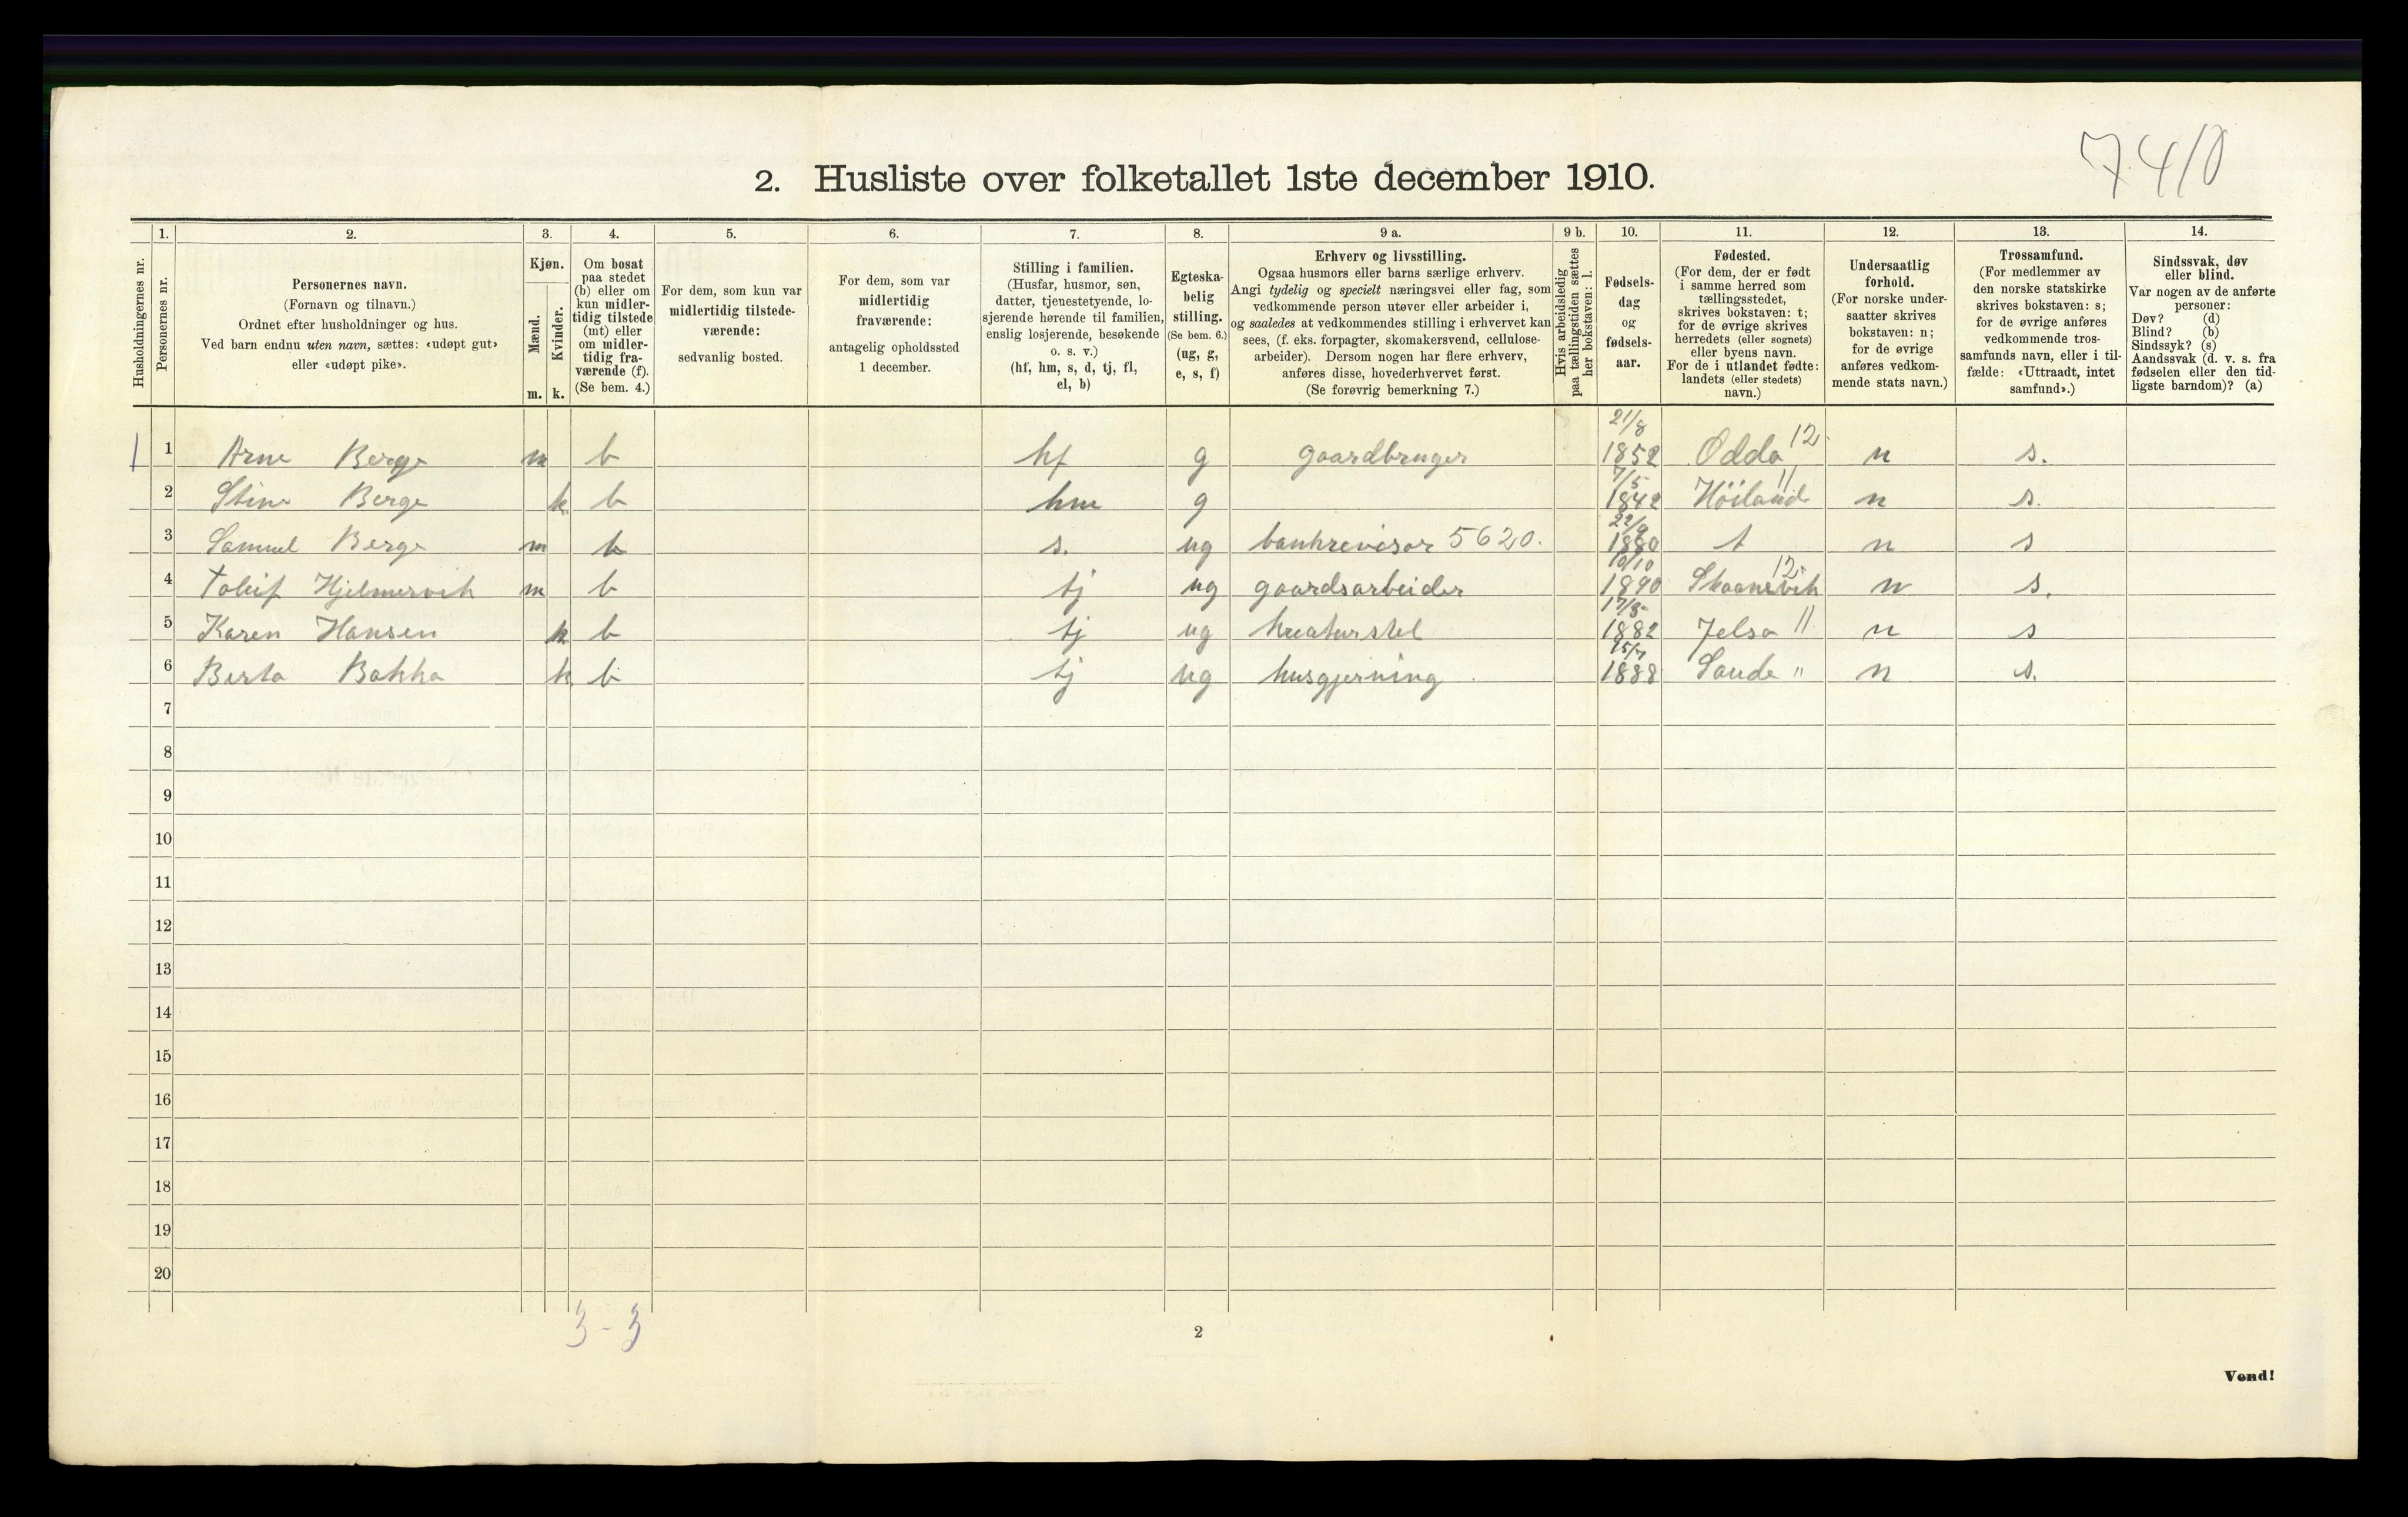 7410
2. Husliste over folketallet 1ste december 1910.
Husholdningernes nr.
1. Personernes nr.
2. Personernes navn.
(Fornavn og tilnavn.)
Ordnet efter husholdninger og hus.
Ved barn endnu uten navn, sættes: «udøpt gut»
eller «udøpt pike».
3. Kjøn.
Mænd. m.
Kvinder. k.
4. Om bosat
paa stedet
(b) eller om
kun midler-
tidig tilstede
(mt) eller
om midler-
tidig fra-
værende (f).
(Se bem. 4.)
5. For dem, som kun var
midlertidig tilstede-
værende:
sedvanlig bosted.
6. For dem, som var
midlertidig
fraværende:
antagelig opholdssted
1 december.
7. Stilling i familien.
(Husfar, husmor, søn,
datter, tjenestetyende, lo-
sjerende hørende til familien,
enslig losjerende, besøkende
o. s. v.)
(hf, hm, s, d, tj, fl,
el, b)
8. Egteska-
belig
stilling.
(Se bem. 6.)
(ug, g,
e, s, f)
9 a. Erhverv og livsstilling.
Ogsaa husmors eller barns særlige erhverv.
Angi tydelig og specielt næringsvei eller fag, som
vedkommende person utøver eller arbeider i,
og saaledes at vedkommendes stilling i erhvervet kan
sees, (f. eks. forpagter, skomakersvend, cellulose-
arbeider). Dersom nogen har flere erhverv,
anføres disse, hovederhvervet først.
(Se forøvrig bemerkning 7.)
9 b. Hvis arbeidsledig
paa tællingstiden sættes
her bokstaven: l.
10. Fødsels-
dag
og
fødsels-
aar.
11. Fødested.
(For dem, der er født
i samme herred som
tællingsstedet,
skrives bokstaven: t;
for de øvrige skrives
herredets (eller sognets)
eller byens navn.
For de i utlandet fødte:
landets (eller stedets)
navn.)
12. Undersaatlig
forhold.
(For norske under-
saatter skrives
bokstaven: n;
for de øvrige
anføres vedkom-
mende stats navn.)
13. Trossamfund.
(For medlemmer av
den norske statskirke
skrives bokstaven: s;
for de øvrige anføres
vedkommende tros-
samfunds navn, eller i til-
fælde: «Uttraadt, intet
samfund».)
14. Sindssvak, døv
eller blind.
Var nogen av de anførte
personer:
Døv? (d)
Blind? (b)
Sindssyk? (s)
Aandssvak (d. v. s. fra
fødselen eller den tid-
ligste barndom)? (a)
1 1 Arne Berge m b hf g gaardbruger 21/8 1852 Odda 12 n s.
2 Stine Berge k b hm g 7/5 1842 Höiland 11 n s.
3 Samuel Berge m b s. ug bankrevisor 5620. 22/9 1880 t n s
4 Toleif Hjelmervik m b tj ug gaardsarbeider 10/10 1890 Skaanevik 12 n s.
5 Karen Hansen k b tj ug kreaturstel 1882 Jelsa 11 n s
6 Berta Bakka k b tj ug husgjerning 1888 Saude " n s.
7
8
9
10
11
12
13
14
15
16
17
18
19
20
3 - 3
2
Vend!